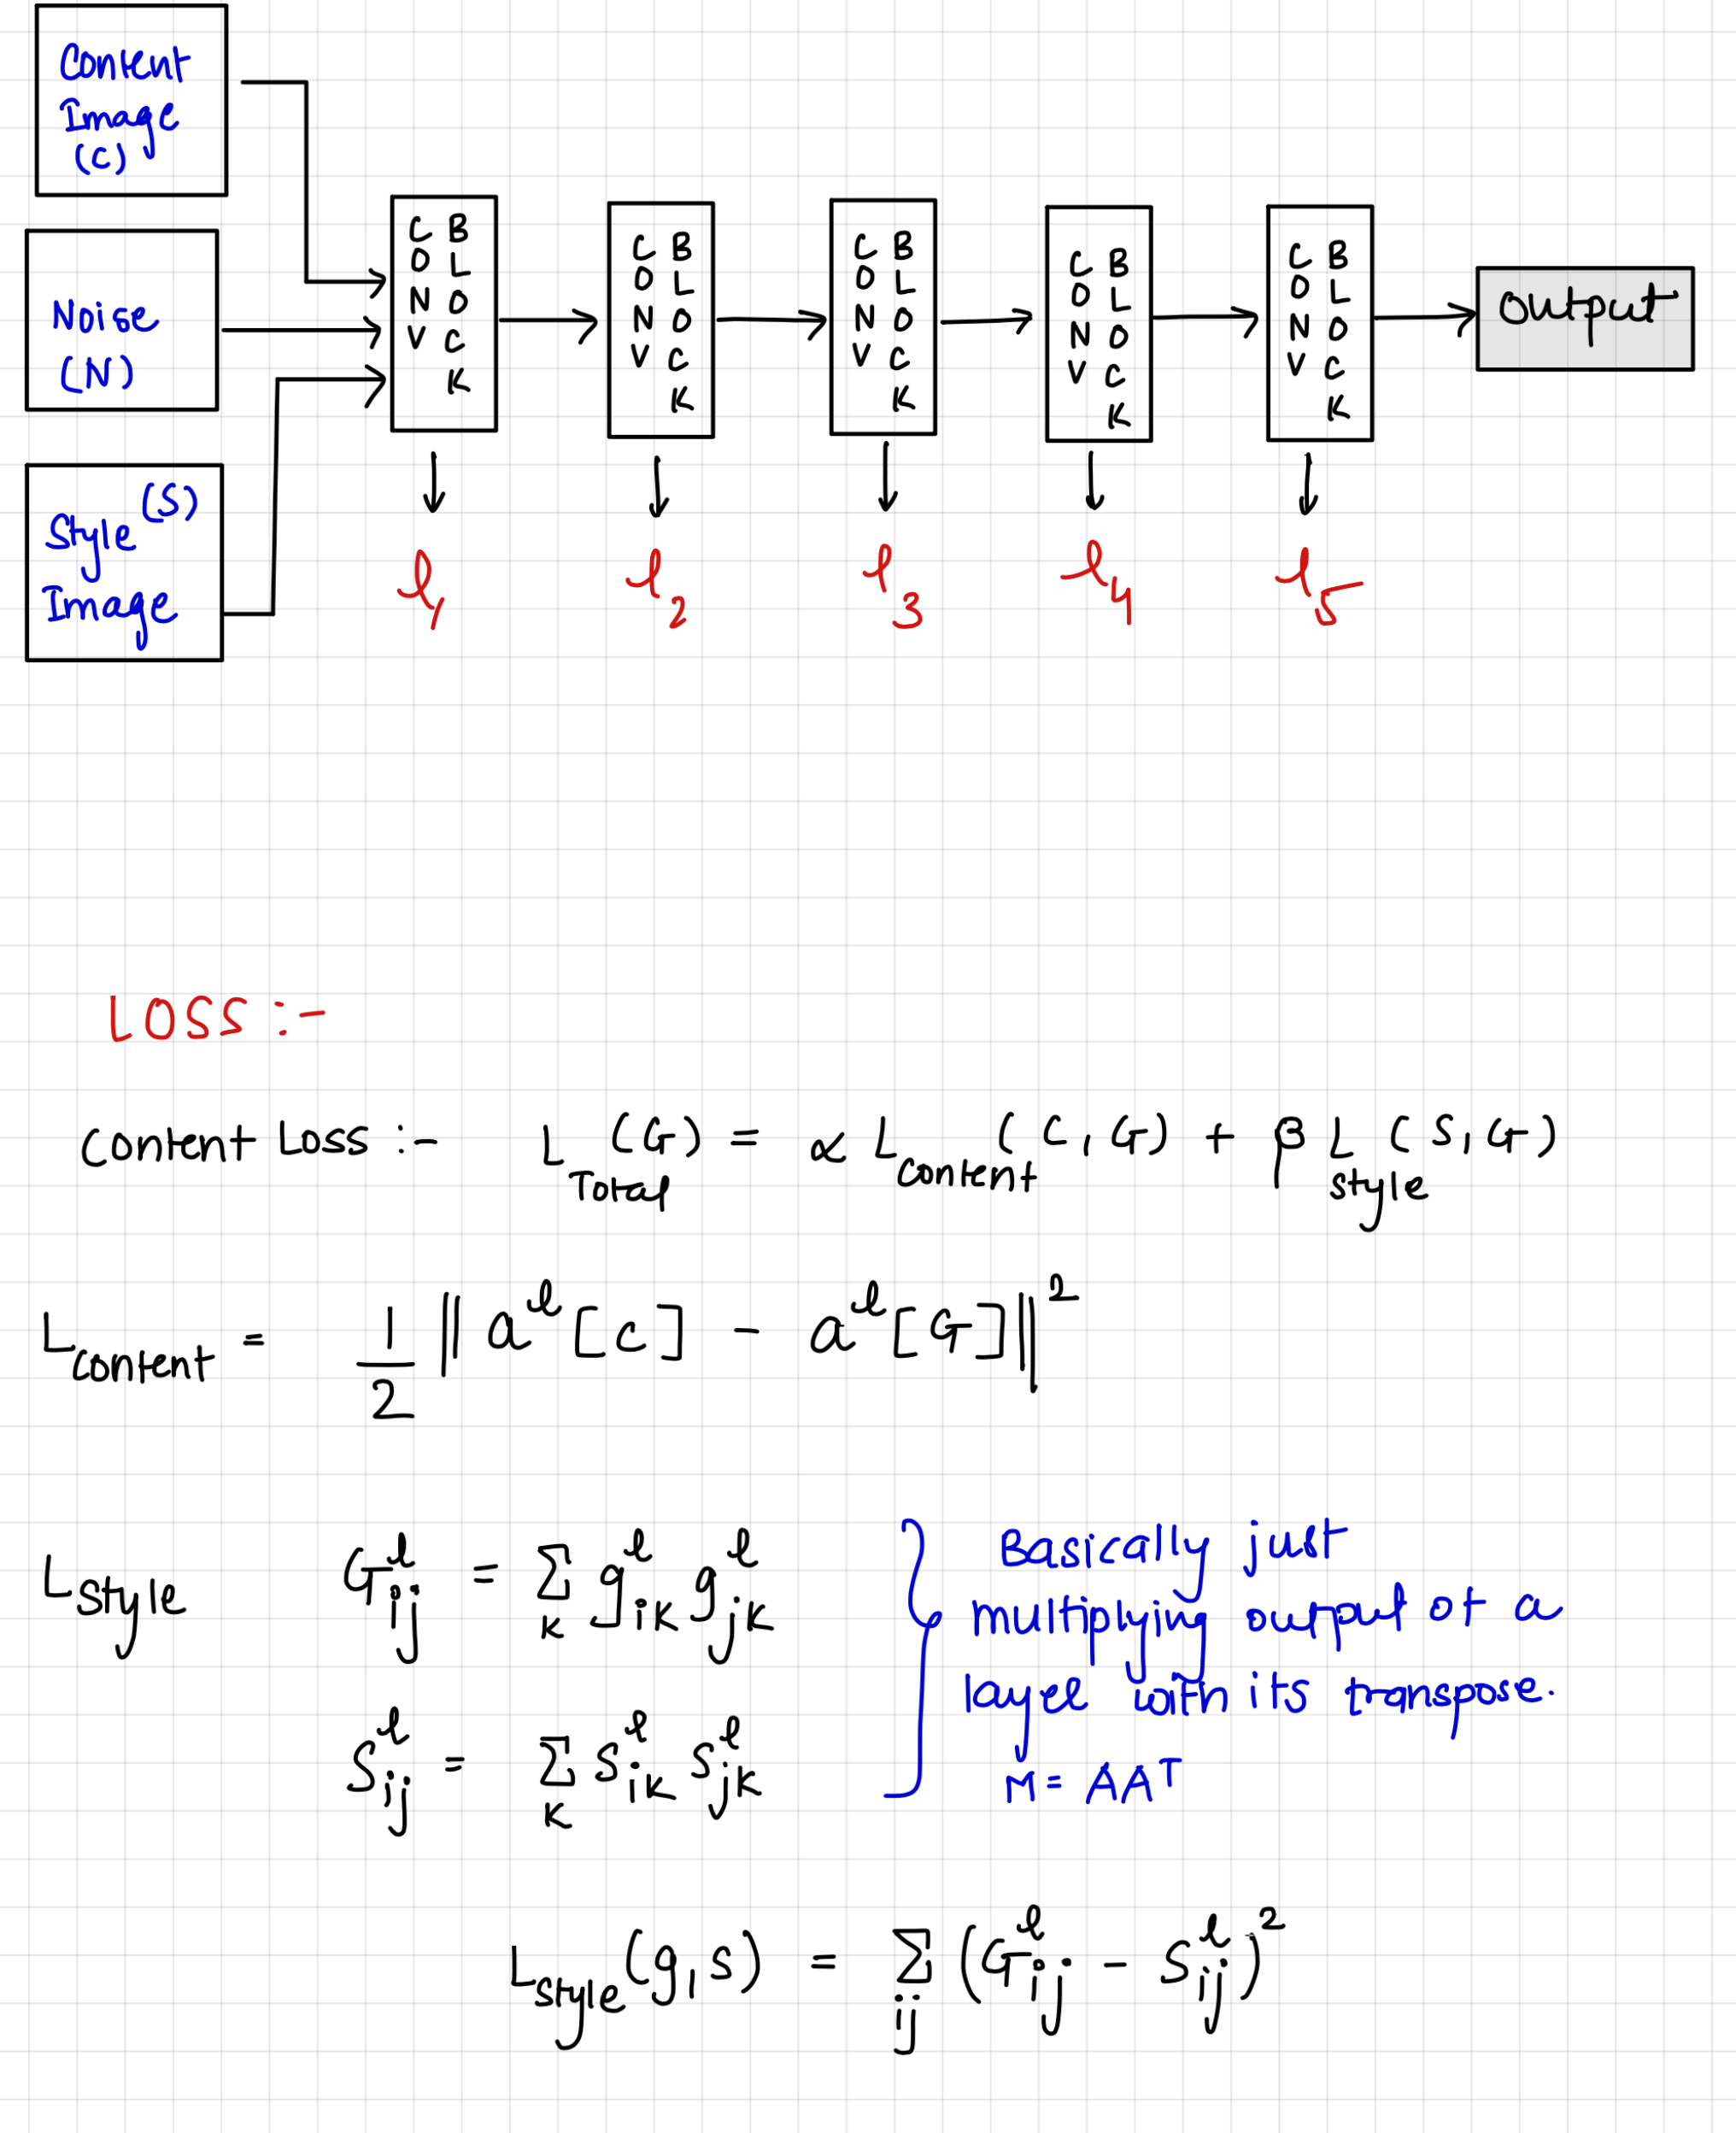 Content
Image
(C)
Noise
(N)
Style (S)
Image
CONV BLOCK
CONV BLOCK
CONV BLOCK
CONV BLOCK
CONV BLOCK
output
l₁
l₂
l₃
l₄
l₅
LOSS :-
Content Loss :- L_Total (G) = α L_Content (C, G) + β L_style (S, G)
L_Content = 1/2 || a^l [C] - a^l [G] ||²
L_style G^l_ij = Σ_k g^l_ik g^l_jk
S^l_ij = Σ_k s^l_ik s^l_jk
Basically just
multiplying output of a
layer with its transpose.
M = AA^T
L_style (g, s) = Σ_ij (G^l_ij - S^l_ij)²